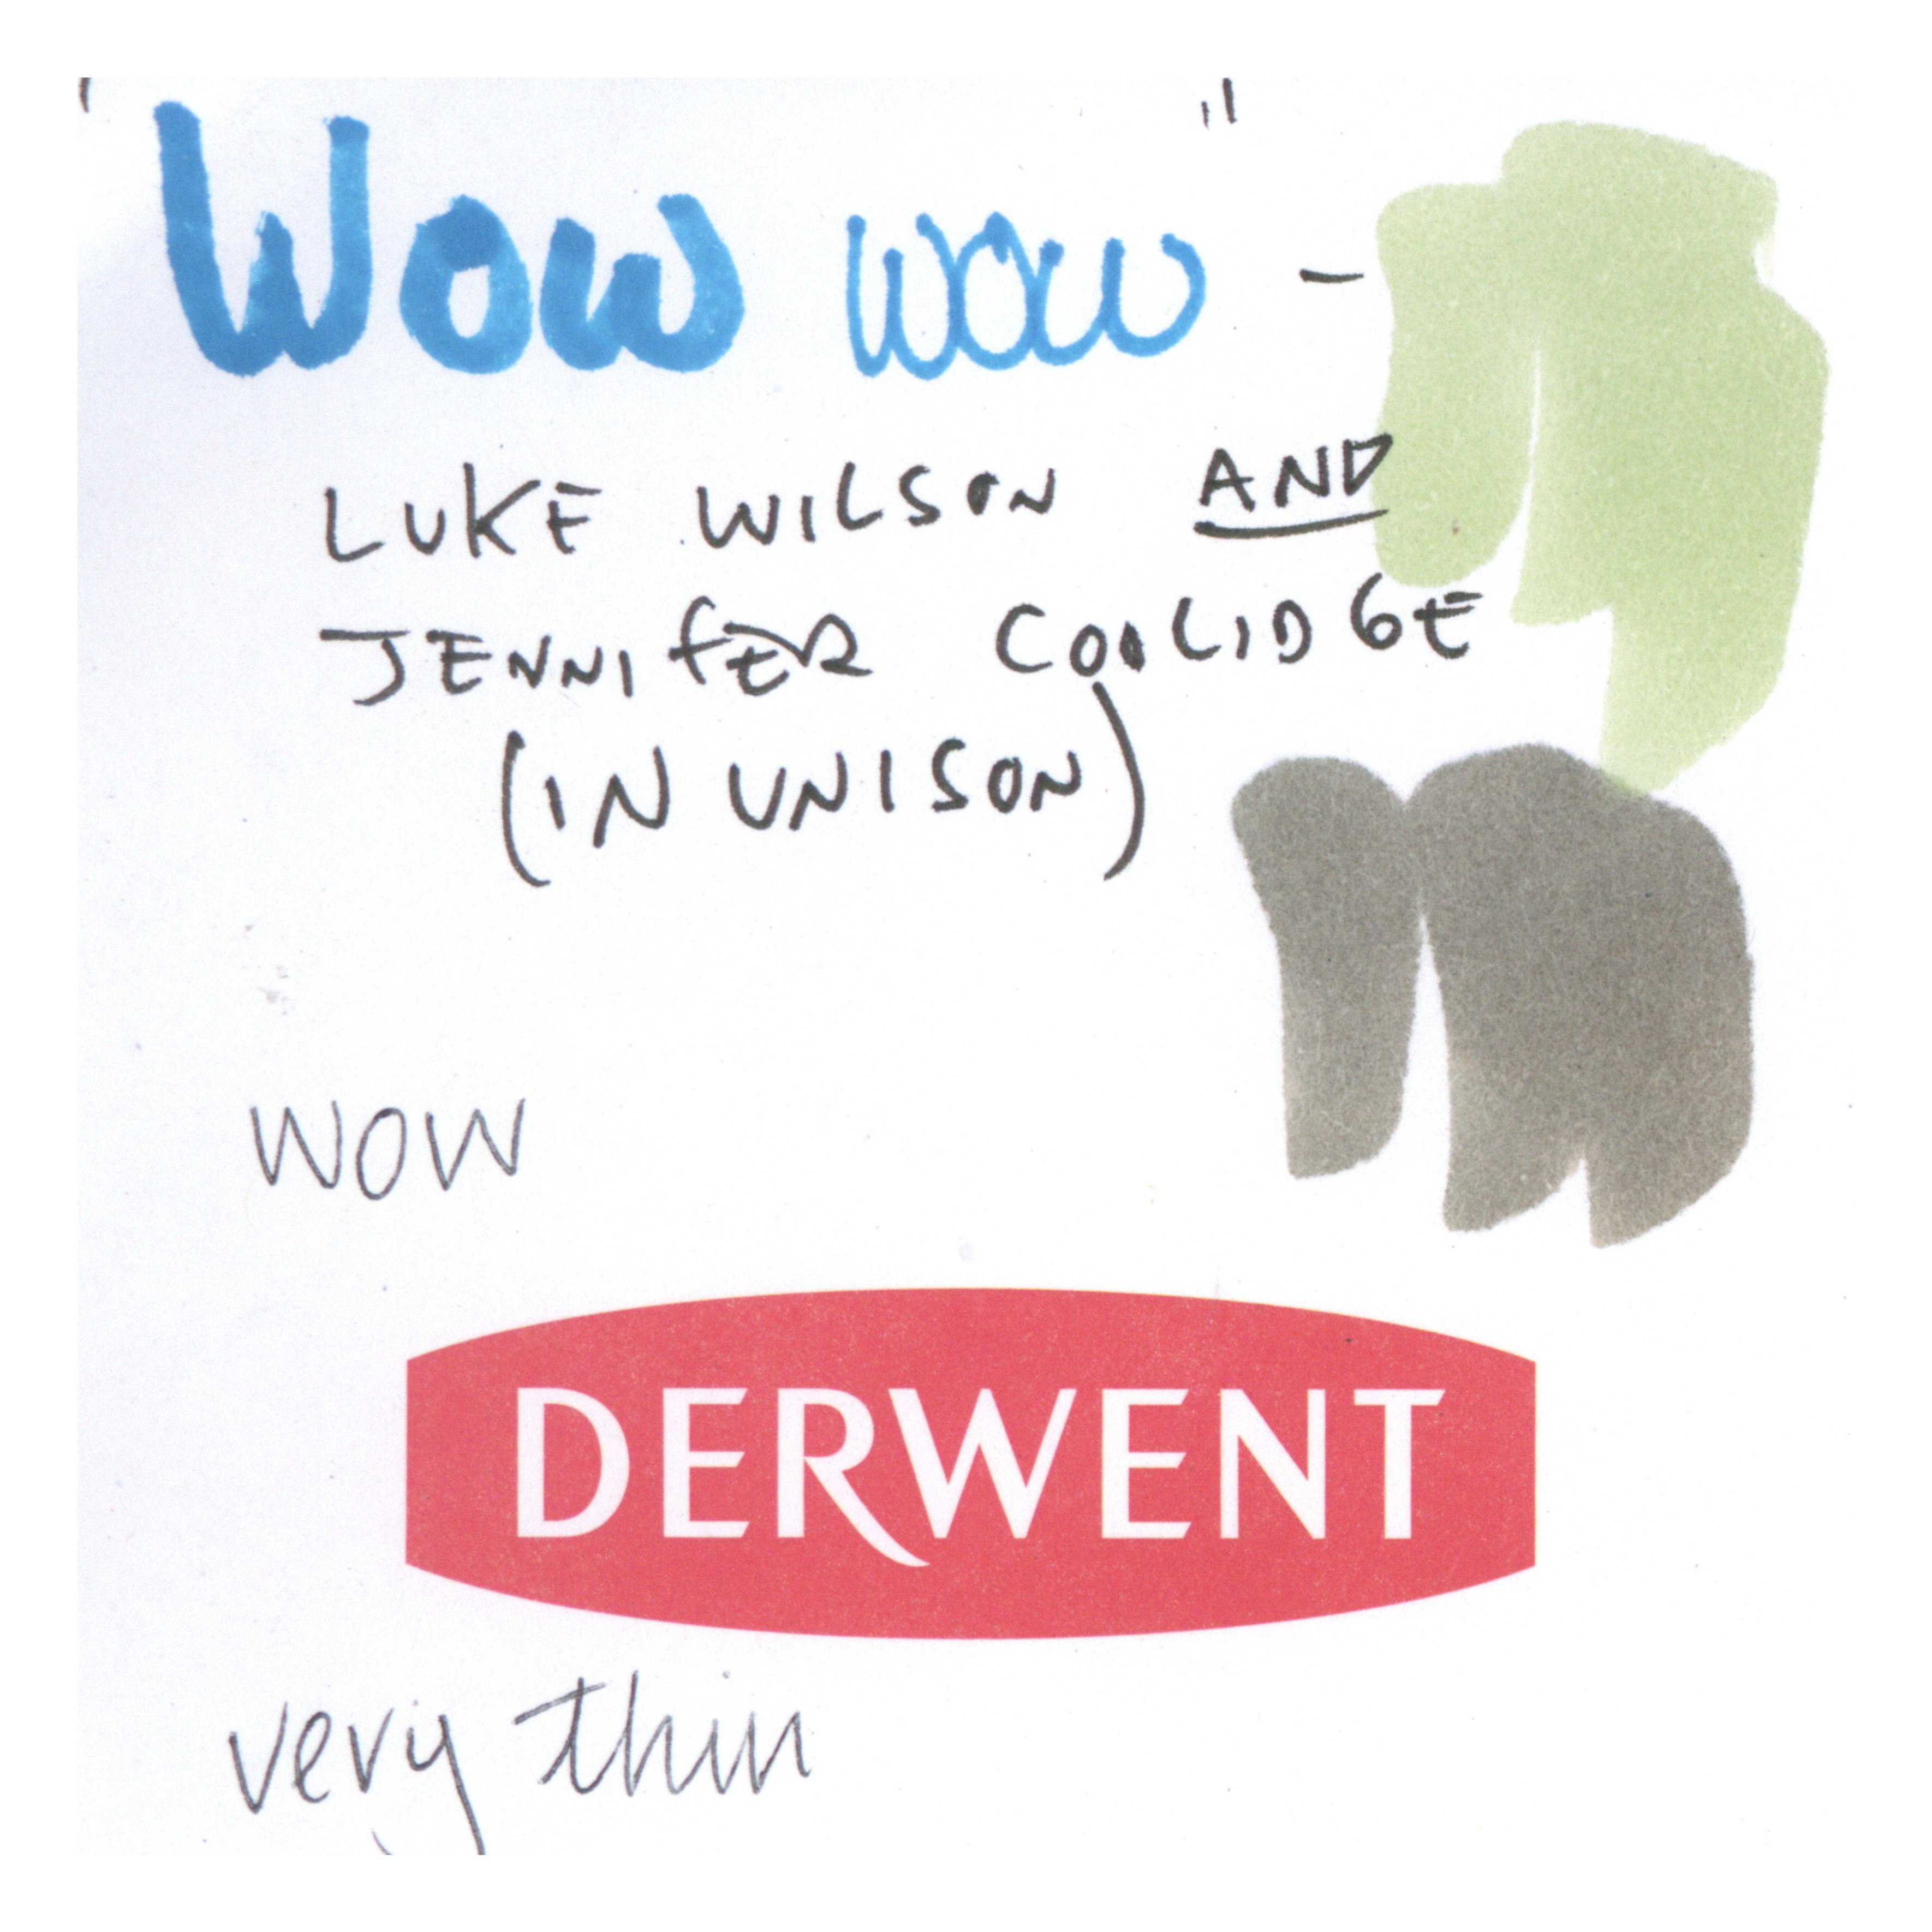 "Wow wow" -
LUKE WILSON AND
JENNIFER COOLIDGE
(IN UNISON)
WOW
DERWENT
very thin